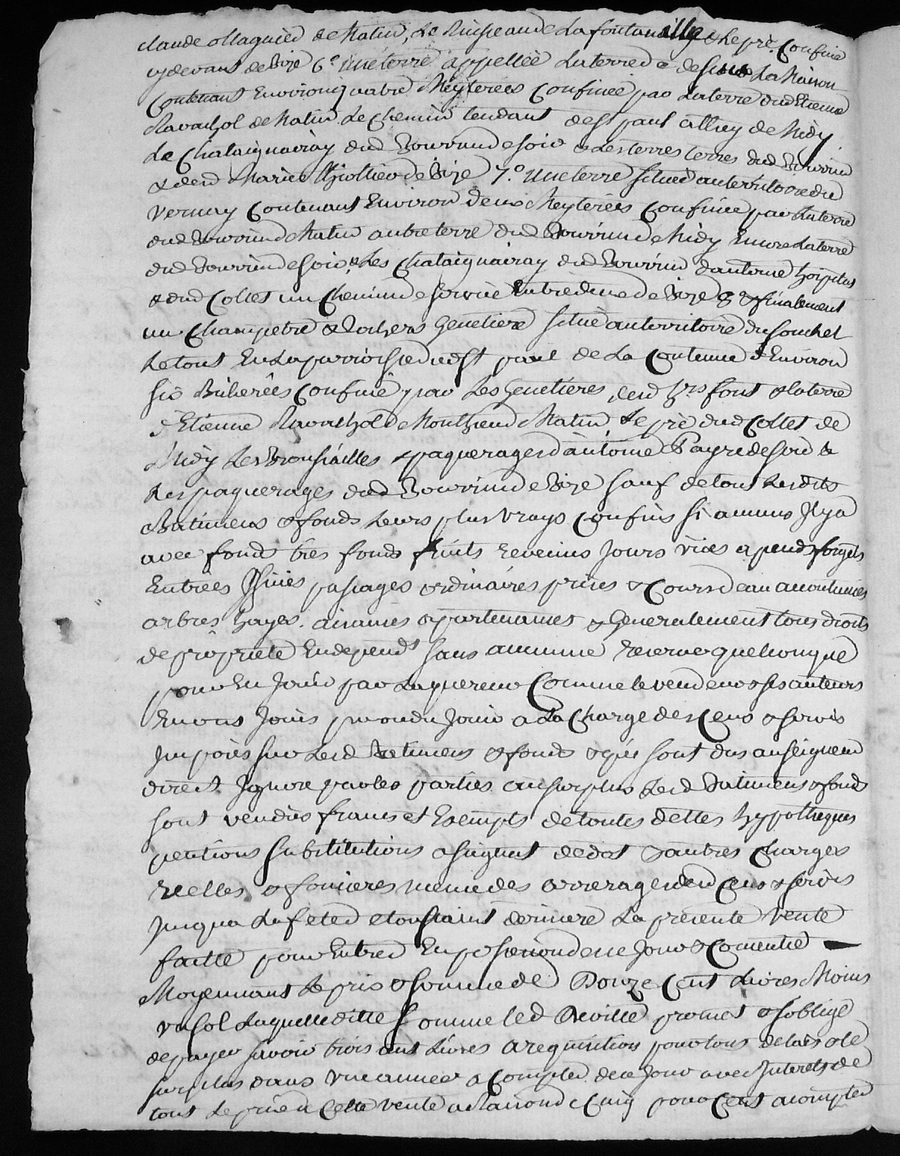 claude ollagnier de matin, Le Ruisseau de La fontanille & Le pré Confiné
cydevant de bize 6° une terre appellée La terre de dessous La Maison
Contenant Environ quatre Meyterées Confinée par La terre dud Etienne
Ravachol de Matin Le Chemin tendant de st paul de Midy
Le Chataignairay dud Bourrin de soir & Les terres terres dud Bourrin
& de Marie de Bize 7° une terre située au territoire du
vernay Contenant Environ deux Meyterées Confinée par La terre
dud Bourrin de Matin autre terre dud Bourrin de Midy Encore La terre
dud Bourrin de soir & Les Chataignairay dud Bourrin d'antoine
& dud Coltes un Chemin de service Entredeux de Bize 8° & finalement
un Champetre & Rochers Genetiere situé au territoire du souchet
Le tout En La parroisse dud st paul de La Contenue d'Environ
six Bicherées Confiné par Les Genetieres font & La terre
d'Etienne Ravachol de Montheud Matin, Le pré dud Coltes de
Midy Les Brousailles & paquerages d'antoine Payre de soir &
Les paquerages dud Bourrin de Bize sauf de tous Lesdits
Batimens & fonds Leurs plus vrays Confins si aucuns Il y a
avec fonds tres fonds fruits revenus Jours vües
Entrées Issües passages ordinaires prises & Cours d'eau accoutumés
arbres hayes aisances apartenances & Generalement tous droits
de propriété En dépend.t sans aucune reserve quelconque
pour En Jouir par Laquereur Comme le vendeur & ses auteurs
En ont Jouis pu ou du Jouir a La Charge des Cens & servis
Imposés sur Lesd Batimens & fonds & qui sont dus au seigneur
direct Ignoré par les parties au surplus Lesd Batimens & fonds
sont vendus francs et Exempts de toutes dettes hypotheques
petitions substitutions assignat de dot & autres Charges
reelles & foncieres meme des arrerages desd Cens & servis
Jusqua La fete de toussaint derniere La presente vente
faitte pour Entrer En possession de ce Jour & Consentie
Moyennant Le prix & somme de Douze Cent Livres Moins
un sol Laquelleditte somme led Deville promet & s'oblige
de payer savoir trois cent Livres a requisition pour tous delais & le
surplus dans une année a Compter de ce Jour avec Interets de
tout Le prix de Cette vente a Raison de Cinq pour Cent a compter